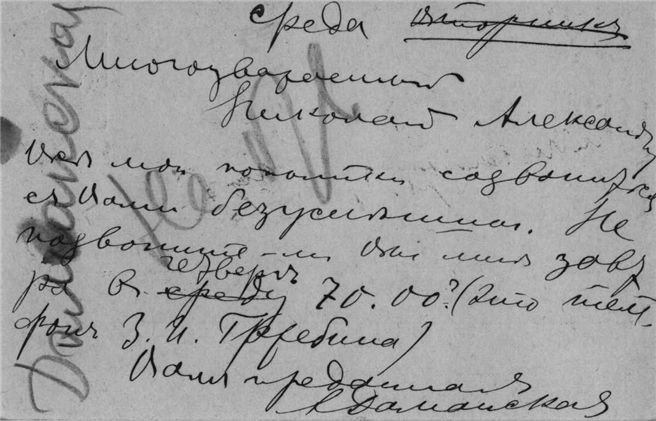 среда вторникъ
Многоуважаемый
Николай Александр
Все мои попытки созвониться
с Вами безуспешны. Не
позвоните-ли Вы мне завт
четвергъ
ра в среду 70.00? (это теле-
фонъ З. И. Гржебина)
Вамъ преданная
А Даманская
Даманская